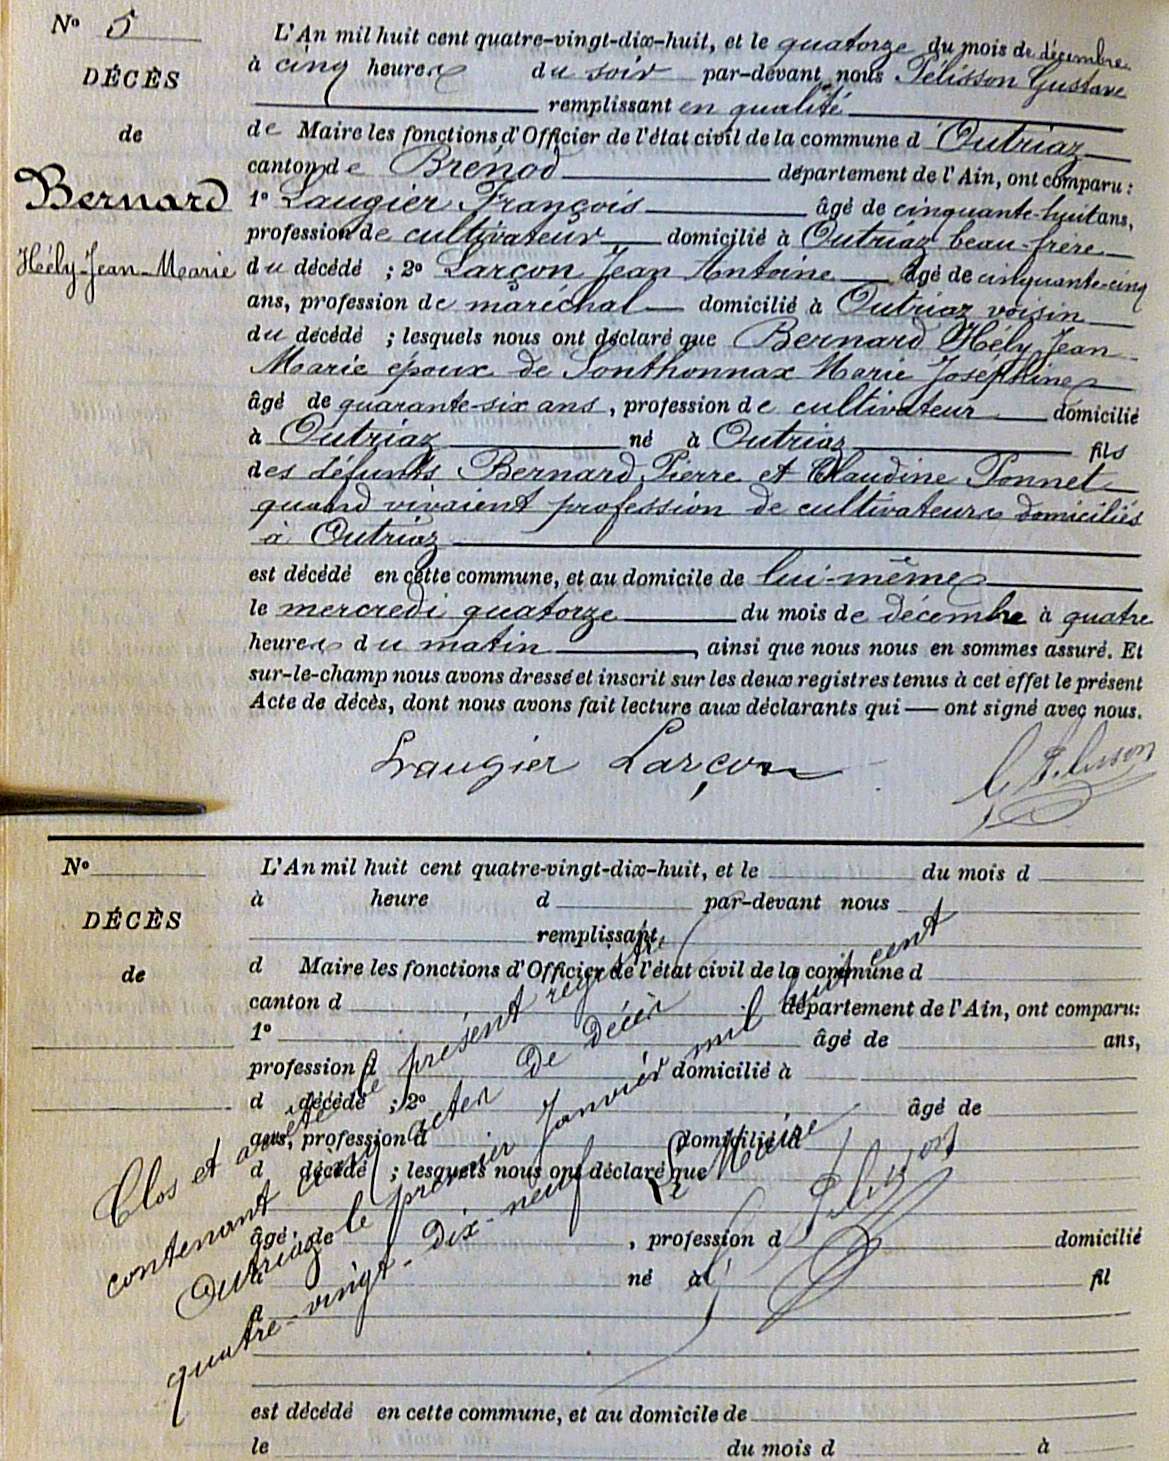 N° 5
DÉCÈS
de
Bernard
Hély-Jean-Marie
L'An mil huit cent quatre-vingt-dix-huit, et le quatorze du mois de décembre
à cinq heures du soir par-devant nous Pélisson Gustave
remplissant en qualité
de Maire les fonctions d'Officier de l'état civil de la commune d'Outriaz
canton de Brénod département de l'Ain, ont comparu :
1° Laugier François âgé de cinquante-huit ans,
profession de cultivateur domicilié à Outriaz beau-frère
du décédé ; 2° Larçon Jean Antoine âgé de cinquante-cinq
ans, profession de maréchal domicilié à Outriaz voisin
du décédé ; lesquels nous ont déclaré que Bernard Hély Jean
Marie époux de Sonthonnax Marie Joséphine
âgé de quarante-six ans, profession de cultivateur domicilié
à Outriaz né à Outriaz fils
des défunts Bernard Pierre et Claudine Ponnet
quand vivaient profession de cultivateurs domiciliés
à Outriaz
est décédé en cette commune, et au domicile de lui-même
le mercredi quatorze du mois de décembre à quatre
heures du matin, ainsi que nous nous en sommes assuré. Et
sur-le-champ nous avons dressé et inscrit sur les deux registres tenus à cet effet le présent
Acte de décès, dont nous avons fait lecture aux déclarants qui — ont signé avec nous.
Laugier Larçon G. Pélisson
N°
DÉCÈS
de
L'An mil huit cent quatre-vingt-dix-huit, et le du mois d
à heure d par-devant nous
remplissant
d Maire les fonctions d'Officier de l'état civil de la commune d
canton d département de l'Ain, ont comparu:
1° âgé de ans,
profession d domicilié à
d décédé ; 2° âgé de
ans, profession d domicilié à
d décédé ; lesquels nous ont déclaré que
âgé de , profession d domicilié
à né à fil
d
est décédé en cette commune, et au domicile de
le du mois d à
Clos et arrêté le présent registre
contenant cinq actes de décès
Outriaz le premier Janvier mil huit cent
quatre-vingt-dix-neuf
Le Maire
G. Pélisson